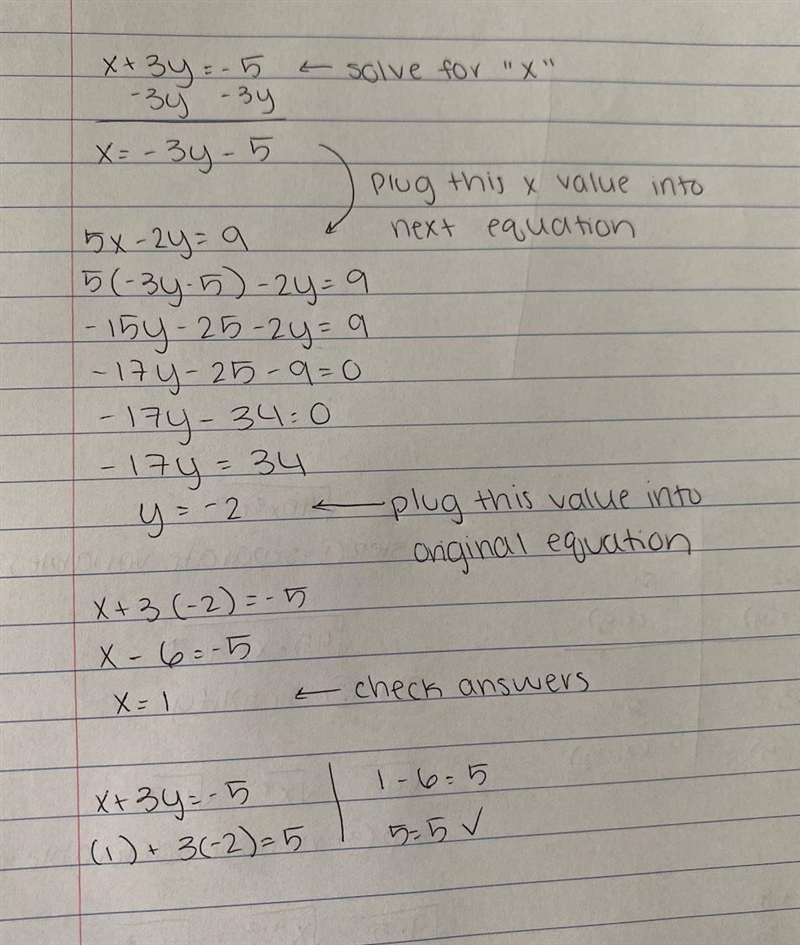 x + 3y = -5 ← solve for "x"
-3y -3y
x = -3y - 5
plug this x value into
next equation
5x - 2y = 9
5(-3y-5) - 2y = 9
-15y - 25 - 2y = 9
-17y - 25 - 9 = 0
-17y - 34 = 0
-17y = 34
y = -2 ← plug this value into
original equation
x + 3(-2) = -5
x - 6 = -5
x = 1 ← check answers
x + 3y = -5 | 1 - 6 = 5
(1) + 3(-2) = 5 | 5 = 5 ✓